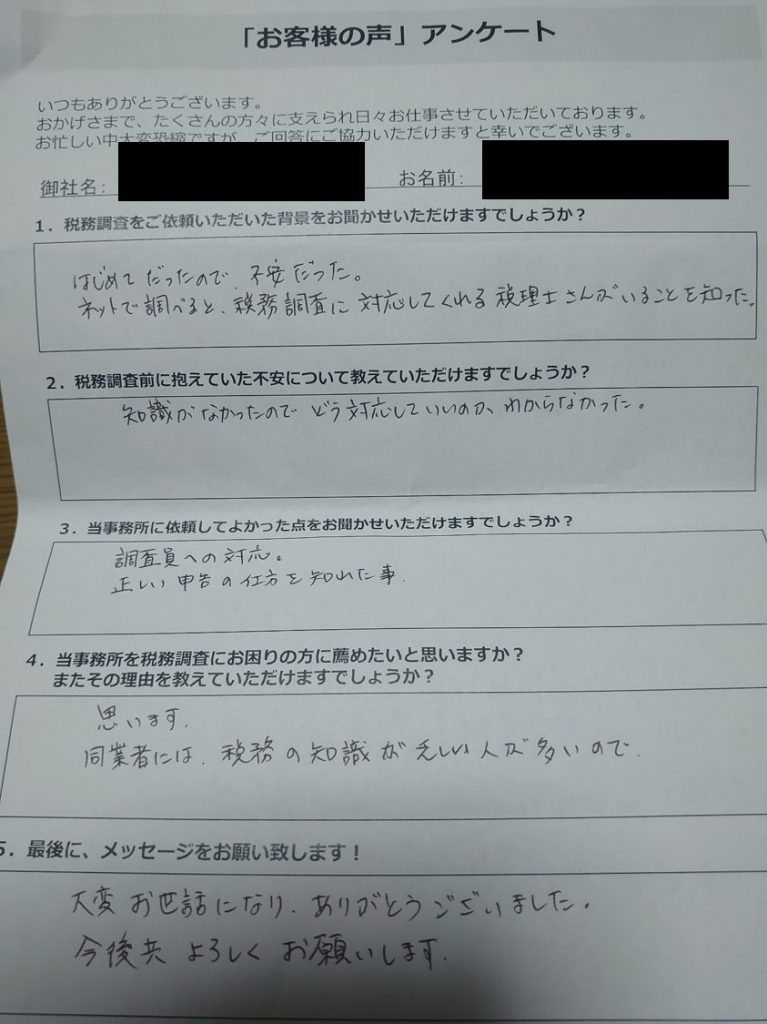 「お客様の声」アンケート
いつもありがとうございます。
おかげさまで、たくさんの方々に支えられ日々お仕事させていただいております。
お忙しい中大変恐縮ですが、ご回答にご協力いただけますと幸いでございます。
御社名: お名前:
1．税務調査をご依頼いただいた背景をお聞かせいただけますでしょうか？
はじめてだったので、不安だった。
ネットで調べると、税務調査に対応してくれる税理士さんがいることを知った。
2．税務調査前に抱えていた不安について教えていただけますでしょうか？
知識がなかったのでどう対応していいのか、わからなかった。
3．当事務所に依頼してよかった点をお聞かせいただけますでしょうか？
調査員への対応。
正しい申告の仕方を知れた事.
4．当事務所を税務調査にお困りの方に薦めたいと思いますか？
またその理由を教えていただけますでしょうか？
思います.
同業者には、税務の知識が乏しい人が多いので.
5．最後に、メッセージをお願い致します！
大変お世話になり、ありがとうございました。
今後共よろしくお願いします.